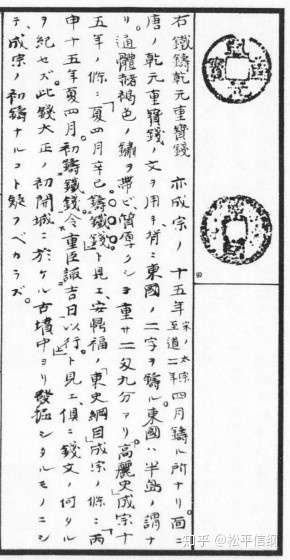 乾元重寶
右鐵鑄乾元重寶錢 亦成宗ノ十五年宋ノ太宗至道二年四月鑄ル所ナリ。面ニ
唐ノ乾元重寶錢ノ文ヲ用ヰ背ニ東國ノ二字ヲ鑄ル。東國ハ半島ノ謂ナ
リ。通體赭褐色ノ鏽ヲ帶ビ質厚クシテ重サ二匁九分アリ。「高麗史」成宗十
五年ノ條ニ「夏四月辛巳鑄鐵錢」ト見エ、安鼎福ノ「東史綱目」成宗ノ條ニ「丙
申十五年夏四月。初鑄鐵錢。令重臣諏吉日以行」ト見エ、倶ニ錢文ノ何タル
ヲ紀セズ。此錢大正ノ初開城ニ於ケル古墳中ヨリ發掘シタルモノニシ
テ、成宗ノ初鑄ナルコト疑フベカラズ。
知乎 @松平信綱